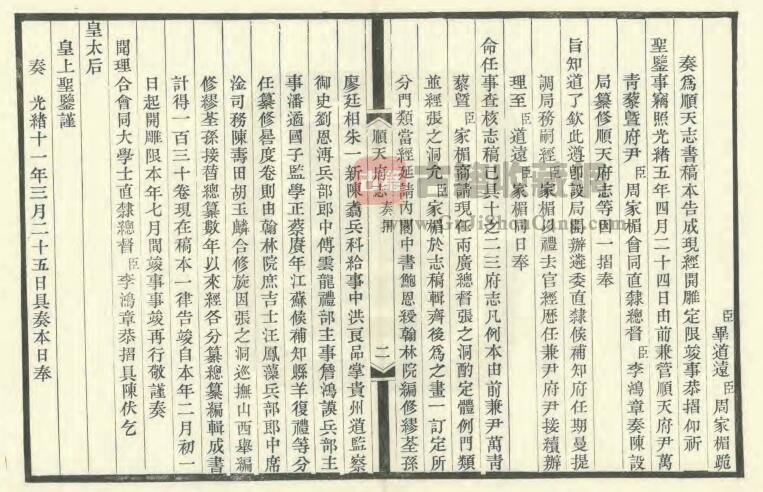 臣畢道遠臣周家楣跪
奏爲順天志書稿本告成現經開雕定限竣事恭摺仰祈
聖鑒事竊照光緒五年四月二十四日由前兼管順天府尹萬
青藜曁府尹臣周家楣會同直隸總督臣李鴻章奏陳設
局纂修順天府志等因一摺奉
旨知道了欽此遵卽設局開辦遴委直隸候補知府任期曼提
調局務嗣經臣家楣禮去官經歷任兼尹府尹接續辦
理至臣道遠臣家楣日奉
命任事查核志稿已具十之二三府志凡例本由前兼尹萬青
藜曁臣家楣商請現任兩廣總督張之洞酌定體例門類
並經張之洞允臣家楣於志稿輯齊後爲之畫一訂定所
分門類當經延請內閣中書鮑恩綬翰林院編修繆荃孫
順天府志 奏摺 二
廖廷相朱一新陳翥兵科給事中洪良品掌貴州道監察
御史劉恩溥兵部郎中傅雲龍禮部主事詹鴻謨兵部主
事潘遹國子監學正蔡賡年江蘇候補知縣羊復禮等分
任纂修晷度卷則由翰林院庶吉士汪鳳藻兵部郎中席
淦司務陳壽田胡玉麟合修旋因張之洞巡撫山西舉編
修繆荃孫接替總纂數年以來經各分纂總纂編輯成書
計得一百三十卷現在稿本一律告竣自本年二月初一
日起開雕限本年七月間竣事事竣再行敬謹奏
聞理合會同大學士直隸總督臣李鴻章恭摺具陳伏乞
皇太后
皇上聖鑒謹
奏 光緒十一年三月二十五日具奏本日奉
GuJiShouCang.com